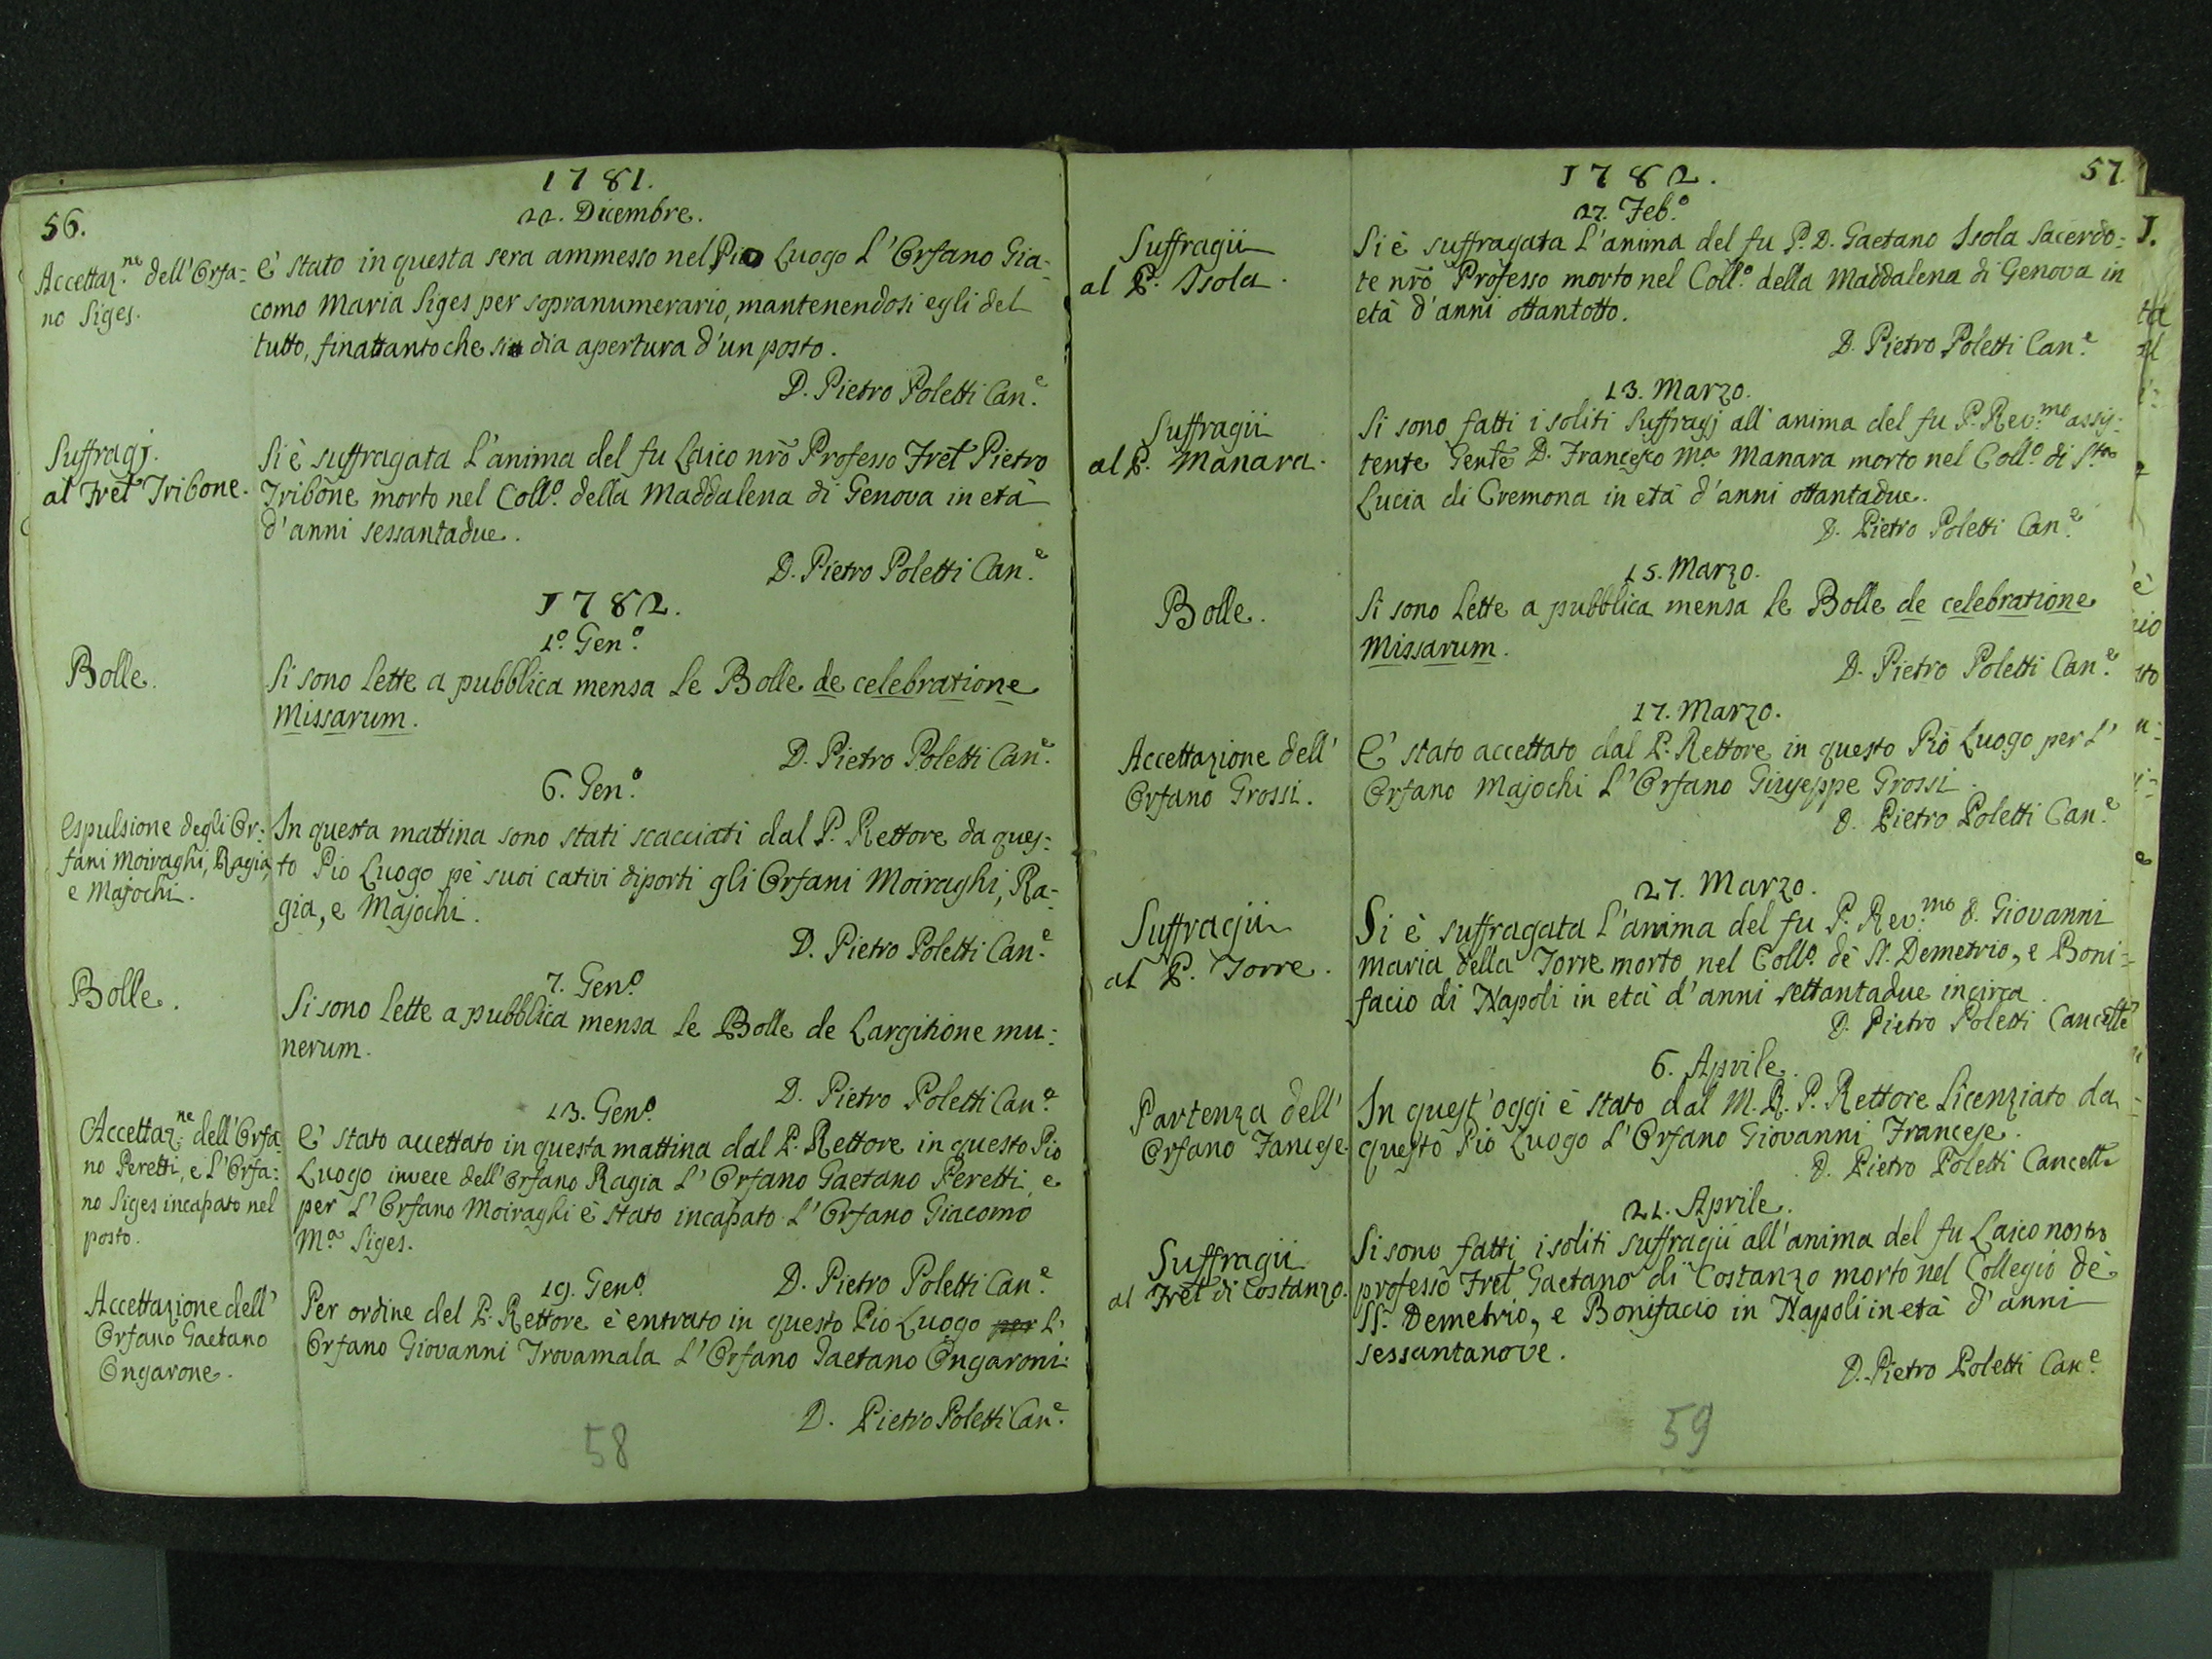 56.
1781.
22. Dicembre.
Accettaz.ne dell'Orfa=
no Siges.
E' stato in questa sera ammesso nel Pio Luogo l'Orfano Gia=
como Maria Siges per sopranumerario, mantenendosi egli del
tutto, finattanto che si dia apertura d'un posto.
D. Pietro Poletti Can.e
Suffragj.
al Frēl Tribone.
Si è suffragata l'anima del fu Laico nrō Professo Frēl Pietro
Tribone morto nel Coll.o della Maddalena di Genova in età
d'anni sessantadue.
D. Pietro Poletti Can.e
1782.
1.o Gen.o
Bolle.
Si sono lette a pubblica mensa le Bolle de celebratione
Missarum.
D. Pietro Poletti Can.e
6. Gen.o
Espulsione degli Or=
fani Moiraghi, Ragia,
e Majochi.
In questa mattina sono stati scacciati dal P. Rettore da ques=
to Pio Luogo pe' suoi cativi diporti gli Orfani Moiraghi, Ra=
gia, e Majochi.
D. Pietro Poletti Can.e
7. Gen.o
Bolle.
Si sono lette a pubblica mensa le Bolle de Largitione mu=
nerum.
D. Pietro Poletti Can.e
13. Gen.o
Accettaz.ne dell'Orfa=
no Peretti, e l'Orfa=
no Siges incapato nel
posto.
E' stato accettato in questa mattina dal P. Rettore in questo Pio
Luogo invece dell'Orfano Ragia l'Orfano Gaetano Peretti, e
per l'Orfano Moiraghi è stato incapato l'Orfano Giacomo
M.a Siges.
D. Pietro Poletti Can.e
19. Gen.o
Accettazione dell'
Orfano Gaetano
Ongarone.
Per ordine del P. Rettore è entrato in questo Pio Luogo per l'
Orfano Giovanni Trovamala l'Orfano Gaetano Ongaroni.
D. Pietro Poletti Can.e
58
57.
1782.
27. Feb.o
Suffragii
al P. Isola.
Si è suffragata l'anima del fu P. D. Gaetano Isola Sacerdo=
te nrō Professo morto nel Coll.o della Maddalena di Genova in
età d'anni ottantotto.
D. Pietro Poletti Can.e
13. Marzo.
Suffragii
al P. Manara.
Si sono fatti i soliti Suffragj all'anima del fu P. Rev.mo assis=
tente Genlē D. Francesco M.a Manara morto nel Coll.o di S.ta
Lucia di Cremona in età d'anni ottantadue.
D. Pietro Poletti Can.e
15. Marzo.
Bolle.
Si sono lette a pubblica mensa le Bolle de celebratione
Missarum.
D. Pietro Poletti Can.e
17. Marzo.
Accettazione dell'
Orfano Grossi.
E' stato accettato dal P. Rettore in questo Pio Luogo per l'
Orfano Majochi l'Orfano Giuseppe Grossi.
D. Pietro Poletti Can.e
27. Marzo.
Suffragii
al P. Torre.
Si è suffragata l'anima del fu P. Rev.mo D. Giovanni
Maria della Torre morto nel Coll.o dè SS. Demetrio, e Boni=
facio di Napoli in età d'anni settantadue incirca.
D. Pietro Poletti Cancelle
6. Aprile.
Partenza dell'
Orfano Fancese.
In quest'oggi è stato dal M. R. P. Rettore licenziato da
questo Pio Luogo l'Orfano Giovanni Francese.
D. Pietro Poletti Cancelle
21. Aprile.
Suffragii
al Frēl di Costanzo.
Si sono fatti i soliti suffragii all'anima del fu Laico nostro
professo Frēl Gaetano di Costanzo morto nel Collegio dè
SS. Demetrio, e Bonifacio in Napoli in età d'anni
sessantanove.
D. Pietro Poletti Can.e
59